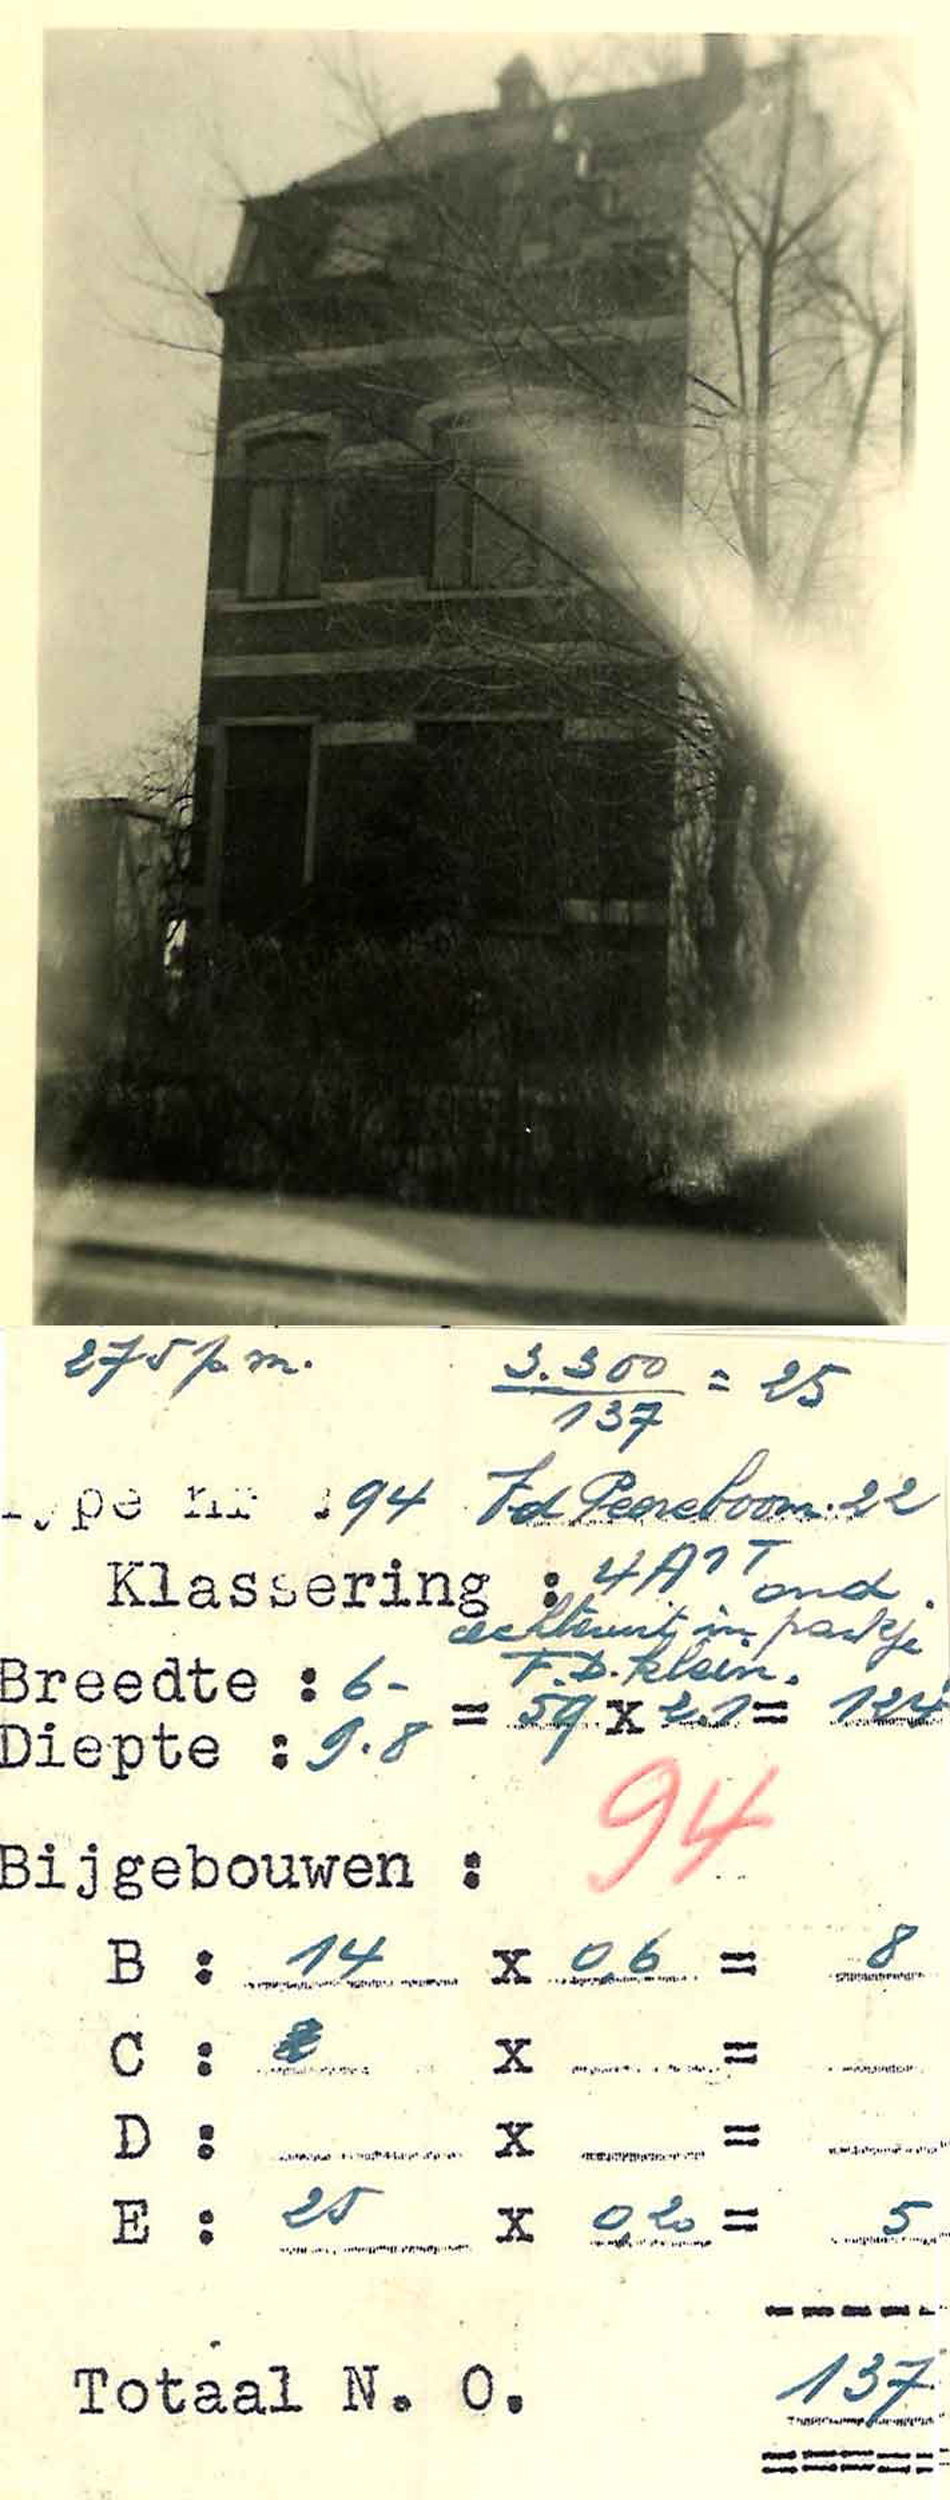 275 p.m. 3.300 / 137 = 25
Type nr : 94 Vd Peereboom. 22
Klassering : 4A1T and.
achteruit in parkje
F.D. klein.
Breedte : 6-
= 59 x 2.1 = 124
Diepte : 9.8
94
Bijgebouwen :
B : 14 x 0,6 = 8
C : x =
D : x =
E : 25 x 0,20 = 5
Totaal N. O. 137